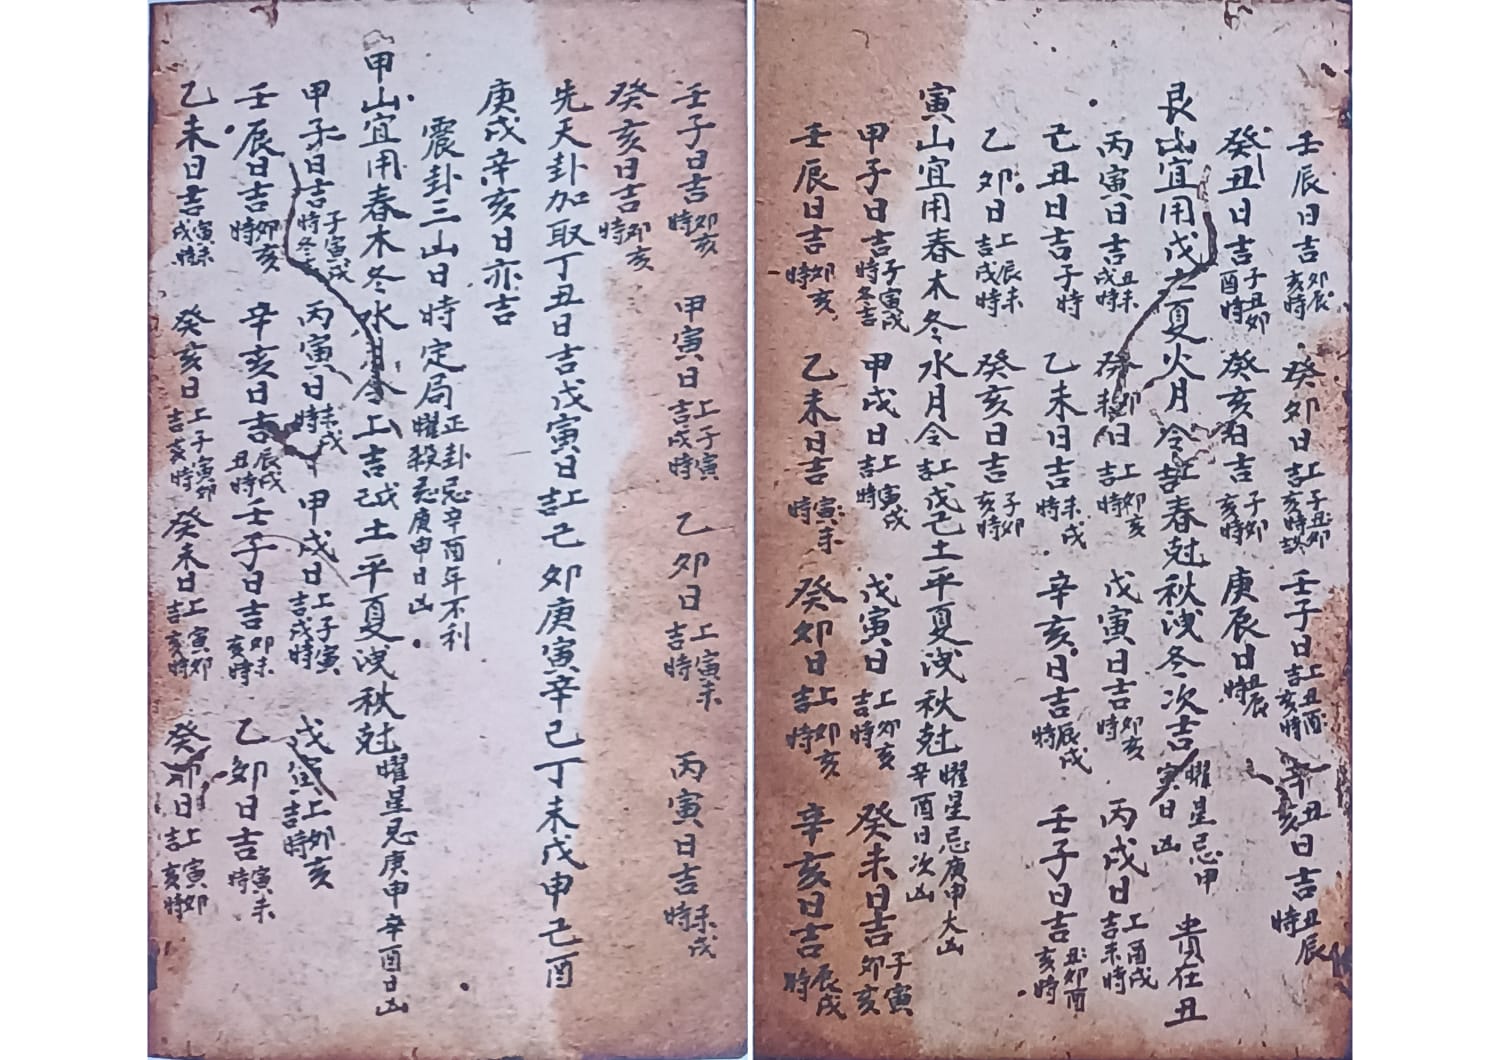 壬辰日吉卯辰亥時 癸卯日上吉子丑卯亥時 壬子日上吉丑酉亥時 辛丑 辛亥日吉丑辰時
癸丑日吉子丑卯酉時 癸亥日吉子卯亥時 庚辰日丑辰時
艮山宜用戊 夏火月令上吉春尅秋洩冬次吉曜星忌甲寅日凶 貴在丑
丙寅日吉丑未戌時 癸卯日上吉卯亥時 戊寅日吉卯亥時 丙戌日上吉酉戌未時
己丑日吉子時 乙未日吉未戌時 辛亥日吉辰戌時 壬子日吉丑卯酉亥時
乙卯日上吉辰未戌時 癸亥日吉子卯亥時
寅山宜用春木冬水月令上吉戊己土平夏洩秋尅曜星忌庚申大凶辛酉日次凶
甲子日吉子寅戌時冬吉 甲戌日上吉寅戌時 戊寅日上吉卯亥時 癸未日吉子寅卯亥
壬辰日吉卯亥時 乙未日吉寅未時 癸卯日上吉卯亥時 辛亥日吉辰戌時
壬子日吉卯亥時 甲寅日上吉子寅戌時 乙卯日上吉寅未時 丙寅日吉未戌時
癸亥日吉卯亥時
先天卦加取丁丑日吉戊寅日上吉己卯庚寅辛己丁未戊申己酉
庚戌辛亥日亦吉
震卦三山日時定局正卦忌辛酉年不利曜殺忌庚申日凶
甲山宜用春木冬水月令上吉戊己土平夏洩秋尅曜星忌庚申辛酉日凶
甲子日吉子寅戌時冬 丙寅日未戌時 甲戌日上吉子寅戌時 戊寅上吉卯亥時
壬辰日吉卯亥時 辛亥日吉辰戌丑時 壬子日吉卯未亥時 乙卯日吉寅未時
乙未日吉寅未戌時 癸亥日上吉子寅卯亥時 癸未日上吉寅卯亥時 癸卯日上吉寅卯亥時